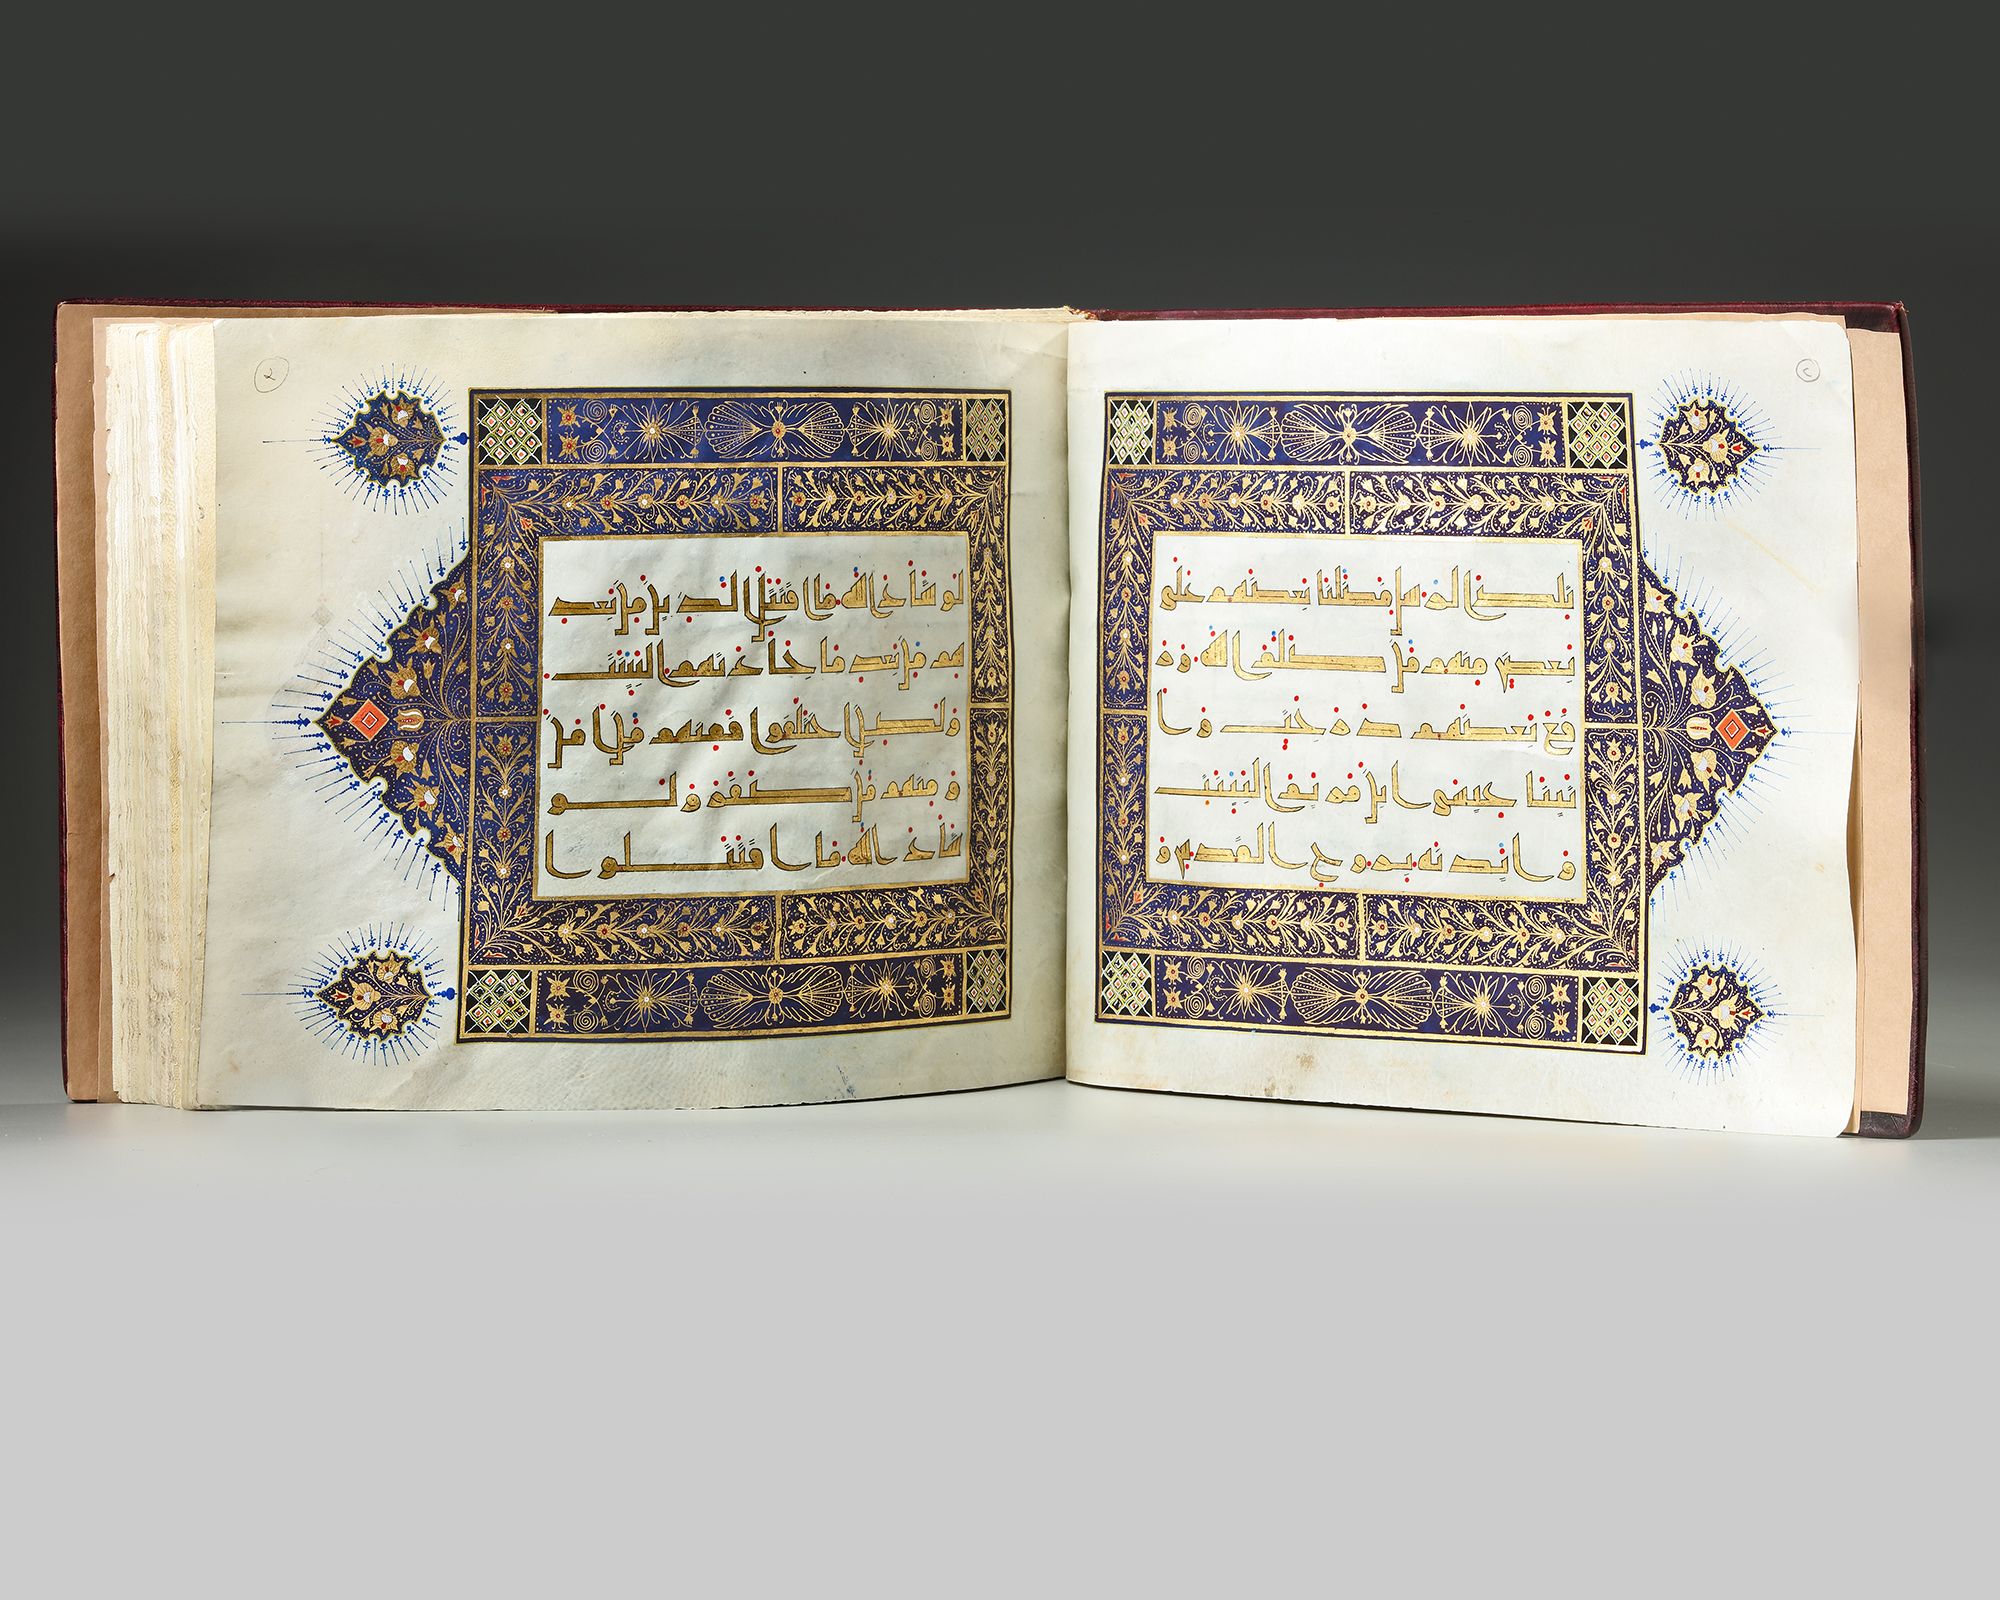 ٢
تلك الرسل فضلنا بعضهم على
بعض منهم من كلم الله ور
فع بعضهم درجت وا
تينا عيسى ابن مريم البينت
و ايدنه بروح القدس و
٢
لو شا الله ما اقتتل الذين من بعد
هم من بعد ما جاتهم البينت
ولكن اختلفوا فمنهم من امن
ومنهم من كفر ولو
شا الله ما اقتتلوا